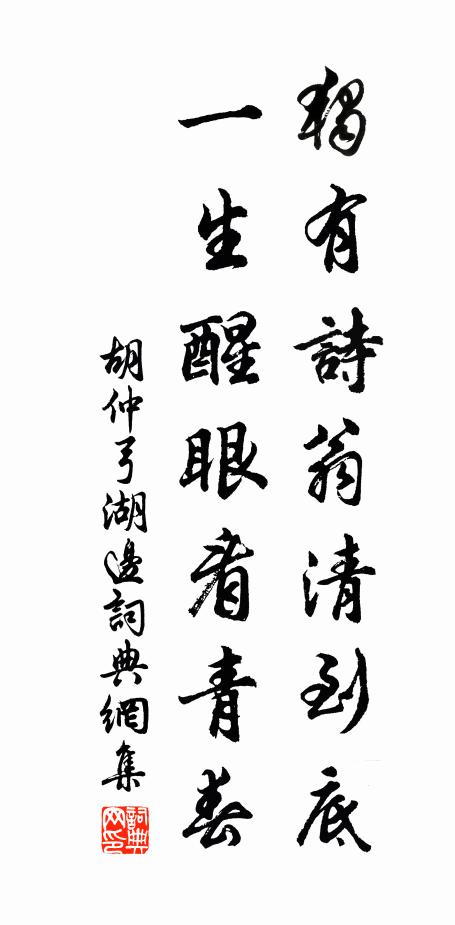 獨有詩翁清到底
一生醒眼看青春
胡仲弓湖邊詞典網集
詞典網印